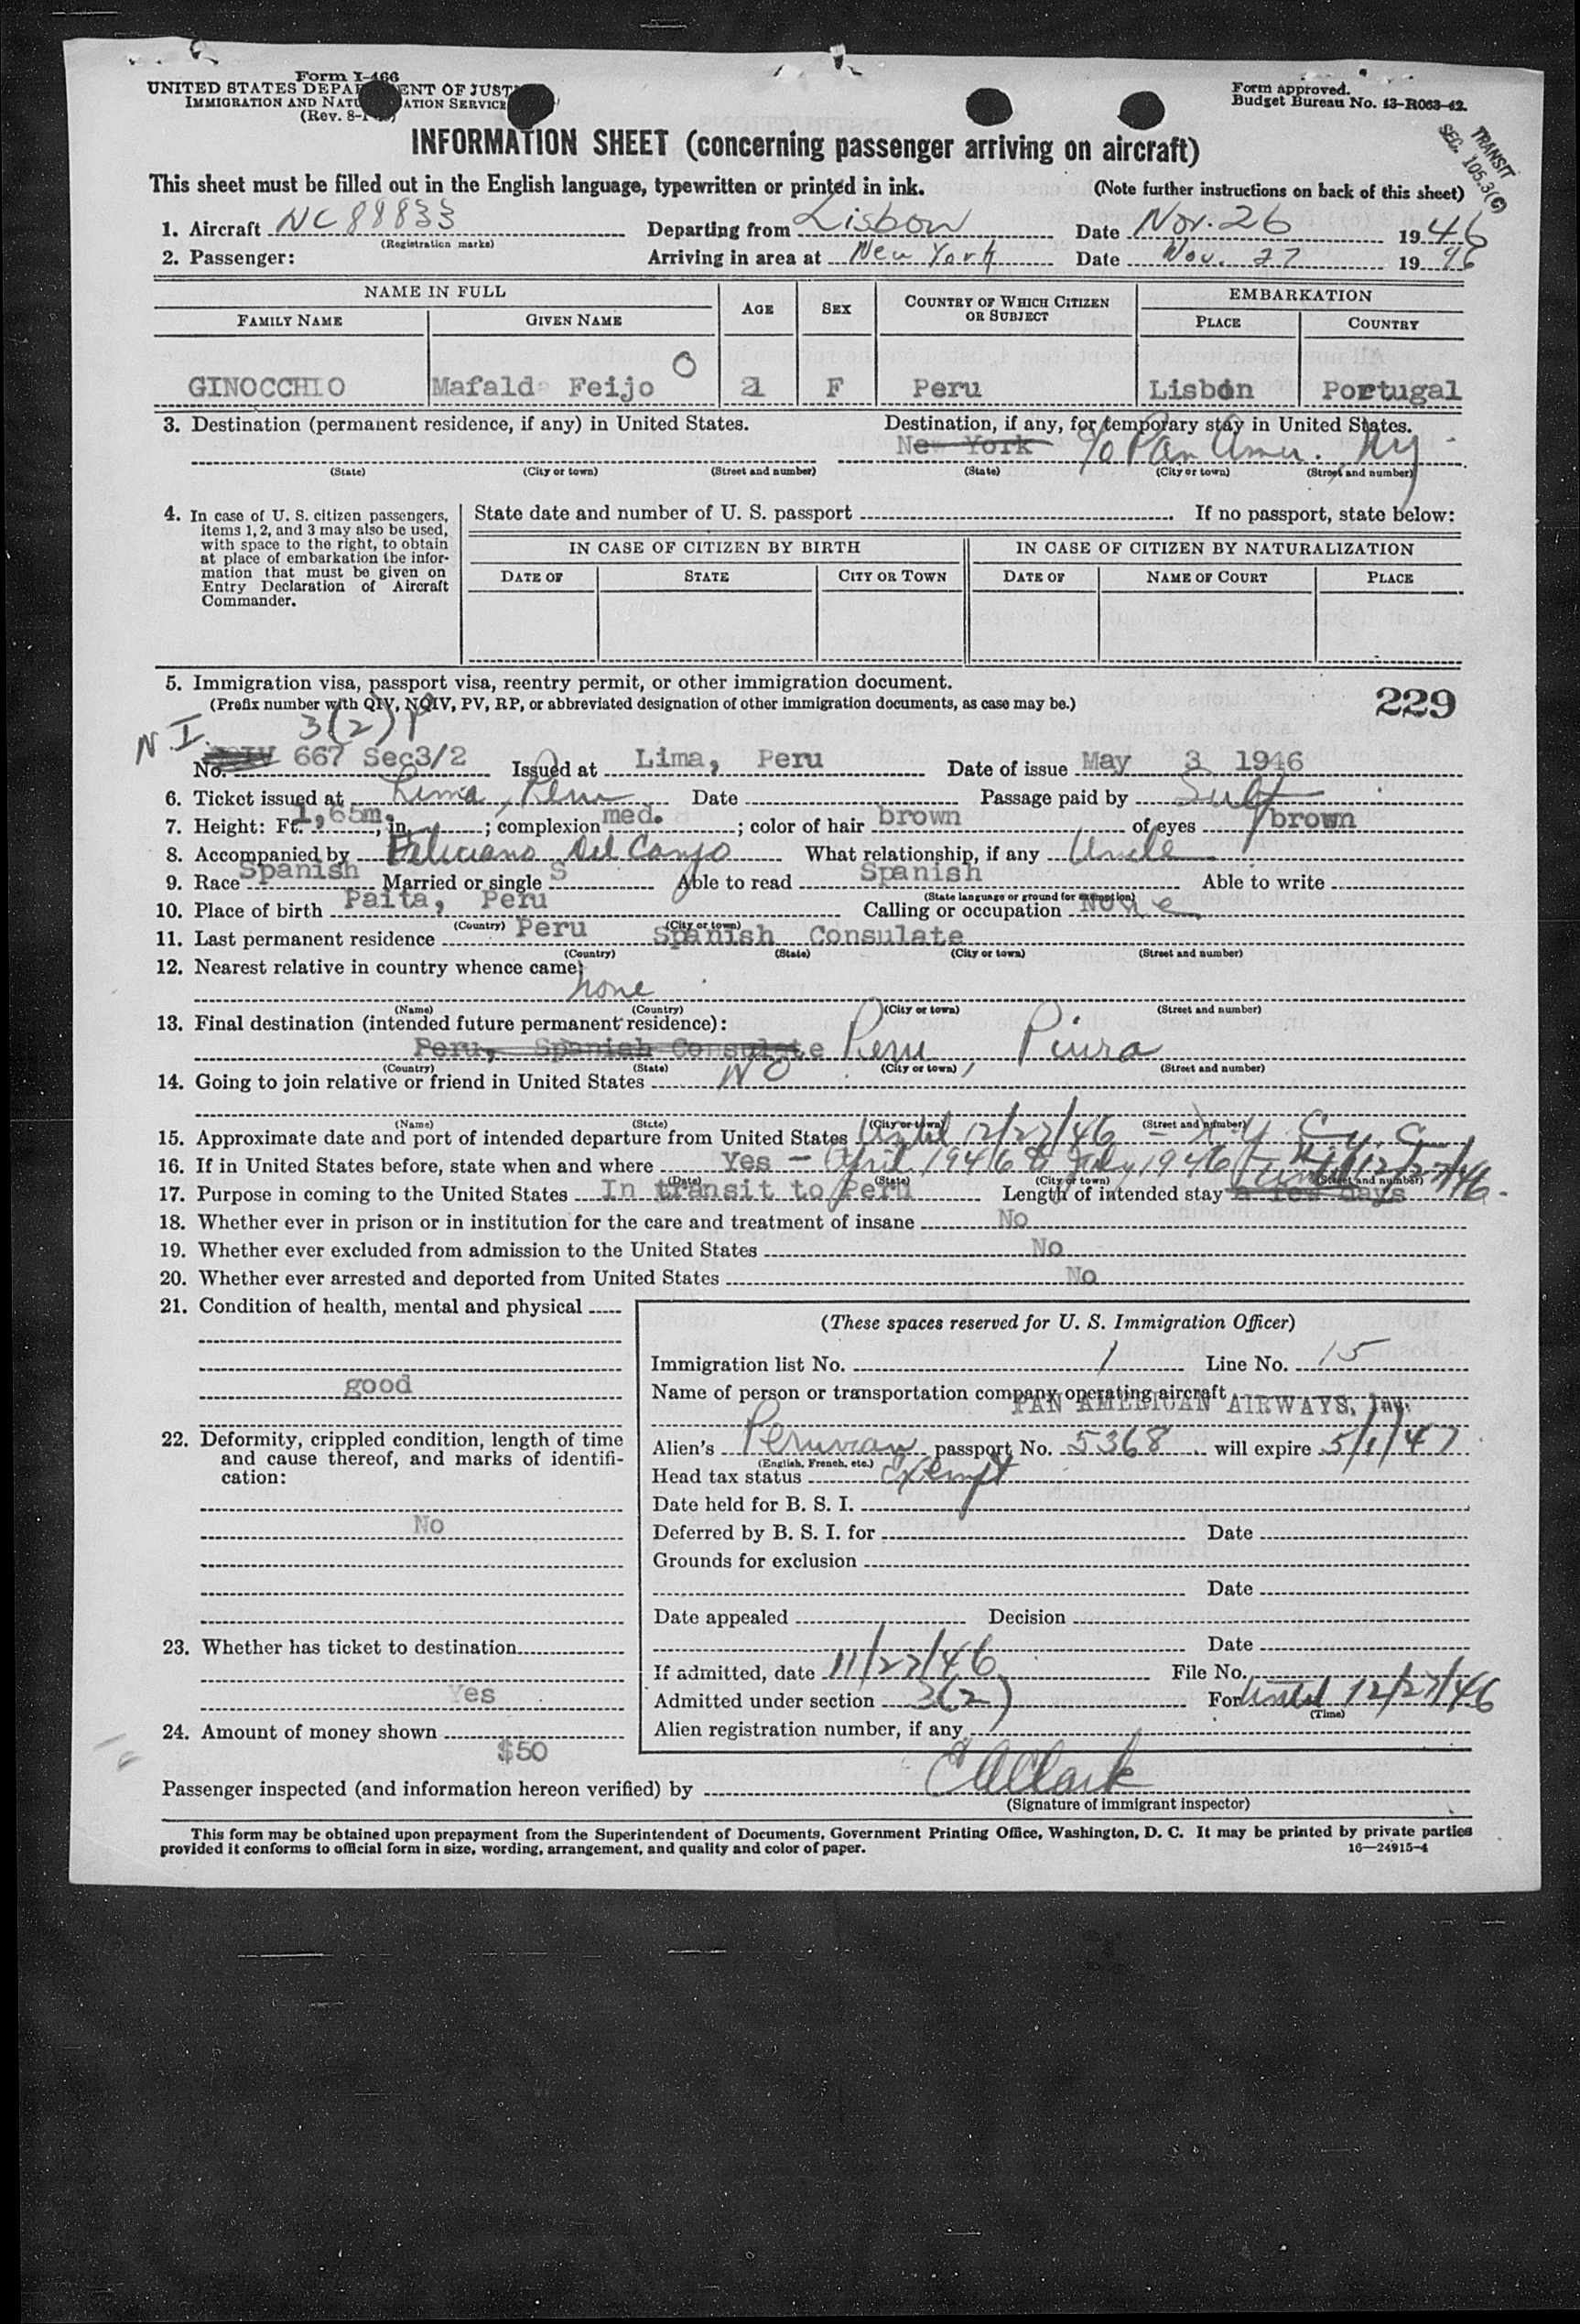 Form I-466
UNITED STATES DEPARTMENT OF JUSTICE
IMMIGRATION AND NATURALIZATION SERVICE
(Rev. 8-1-45)
Form approved.
Budget Bureau No. 43-R063-42.
TRANSIT
SEC. 105.3(C)
INFORMATION SHEET (concerning passenger arriving on aircraft)
This sheet must be filled out in the English language, typewritten or printed in ink. (Note further instructions on back of this sheet)
1. Aircraft NC88833 Departing from Lisbon Date Nov. 26 1946
(Registration marks)
2. Passenger: Arriving in area at New York Date Nov. 27 1946
NAME IN FULL AGE SEX COUNTRY OF WHICH CITIZEN OR SUBJECT EMBARKATION
FAMILY NAME GIVEN NAME PLACE COUNTRY
GINOCCHIO Mafalda Feijo O 21 F Peru Lisbon Portugal
3. Destination (permanent residence, if any) in United States. Destination, if any, for temporary stay in United States.
New York c/o Pan Amer. NY
(State) (City or town) (Street and number) (State) (City or town) (Street and number)
4. In case of U. S. citizen passengers, items 1, 2, and 3 may also be used, with space to the right, to obtain at place of embarkation the information that must be given on Entry Declaration of Aircraft Commander.
State date and number of U. S. passport If no passport, state below:
IN CASE OF CITIZEN BY BIRTH IN CASE OF CITIZEN BY NATURALIZATION
DATE OF STATE CITY OR TOWN DATE OF NAME OF COURT PLACE
5. Immigration visa, passport visa, reentry permit, or other immigration document.
(Prefix number with QIV, NQIV, PV, RP, or abbreviated designation of other immigration documents, as case may be.)
229
N.I. 3(2) P
No. 667 Sec3/2 Issued at Lima, Peru Date of issue May 3 1946
6. Ticket issued at Lima, Peru Date Passage paid by Self
7. Height: Ft. 1,65m., in. ; complexion med. ; color of hair brown of eyes brown
8. Accompanied by Feliciano Del Campo What relationship, if any Uncle
9. Race Spanish Married or single S Able to read Spanish Able to write
(State language or ground for exemption)
10. Place of birth Paita, Peru Calling or occupation None
(Country) (City or town)
11. Last permanent residence Peru Spanish Consulate
(Country) (State) (City or town) (Street and number)
12. Nearest relative in country whence came:
none
(Name) (Country) (City or town) (Street and number)
13. Final destination (intended future permanent residence):
Peru, Spanish Consulate Peru, Piura
(Country) (State) (City or town) (Street and number)
14. Going to join relative or friend in United States NO
(Name) (State) (City or town) (Street and number)
15. Approximate date and port of intended departure from United States Until 12/27/46 - N.Y.
16. If in United States before, state when and where Yes - April 1946 & July 1946
(Date) (State) (City or town) (Street and number)
17. Purpose in coming to the United States In transit to Peru Length of intended stay a few days 12/27/46.
18. Whether ever in prison or in institution for the care and treatment of insane No
19. Whether ever excluded from admission to the United States No
20. Whether ever arrested and deported from United States No
21. Condition of health, mental and physical
good
22. Deformity, crippled condition, length of time and cause thereof, and marks of identification:
No
23. Whether has ticket to destination
Yes
24. Amount of money shown
$50
(These spaces reserved for U. S. Immigration Officer)
Immigration list No. 1 Line No. 15
Name of person or transportation company operating aircraft
PAN AMERICAN AIRWAYS, Inc.
Alien's Peruvian passport No. 5368 will expire 5/1/47
(English, French, etc.)
Head tax status Exempt
Date held for B. S. I.
Deferred by B. S. I. for Date
Grounds for exclusion
Date
Date appealed Decision
Date
If admitted, date 11/27/46 File No.
Admitted under section 3(2) For Until 12/27/46
(Time)
Alien registration number, if any
Passenger inspected (and information hereon verified) by C A Clark
(Signature of immigrant inspector)
This form may be obtained upon prepayment from the Superintendent of Documents, Government Printing Office, Washington, D. C. It may be printed by private parties
provided it conforms to official form in size, wording, arrangement, and quality and color of paper. 16—24915-4